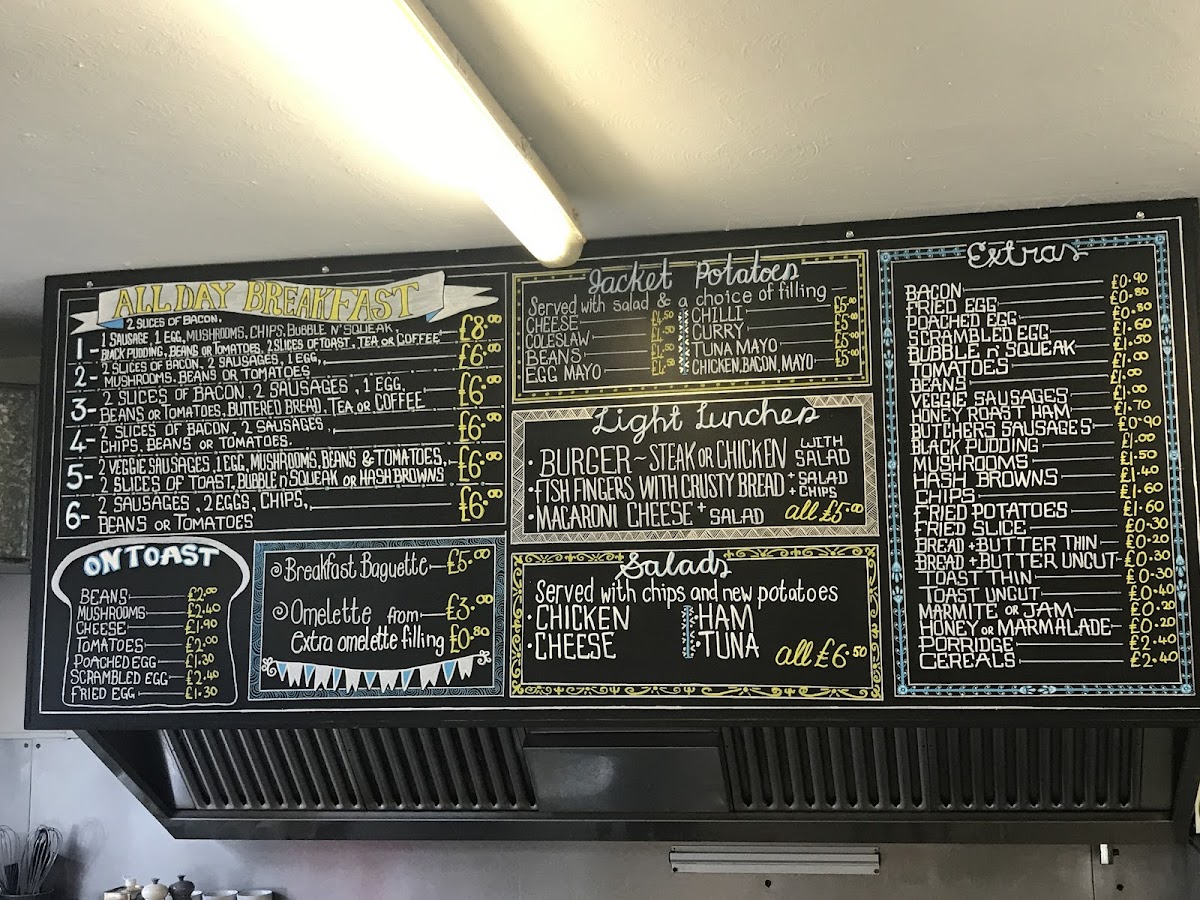 ALL DAY BREAKFAST
2 SLICES OF BACON,
1- 1 SAUSAGE, 1 EGG, MUSHROOMS, CHIPS, BUBBLE N' SQUEAK, £8.00
BLACK PUDDING, BEANS OR TOMATOES, 2 SLICES OF TOAST, TEA OR COFFEE
2- 2 SLICES OF BACON, 2 SAUSAGES, 1 EGG, £6.00
MUSHROOMS, BEANS OR TOMATOES
3- 2 SLICES OF BACON, 2 SAUSAGES, 1 EGG, £6.00
BEANS OR TOMATOES, BUTTERED BREAD, TEA OR COFFEE
4- 2 SLICES OF BACON, 2 SAUSAGES, £6.00
CHIPS, BEANS OR TOMATOES.
5- 2 VEGGIE SAUSAGES, 1 EGG, MUSHROOMS, BEANS & TOMATOES, £6.00
2 SLICES OF TOAST, BUBBLE N' SQUEAK OR HASH BROWNS
6- 2 SAUSAGES, 2 EGGS, CHIPS, £6.00
BEANS OR TOMATOES
ON TOAST
BEANS £2.00
MUSHROOMS £2.40
CHEESE £1.90
TOMATOES £2.00
POACHED EGG £1.30
SCRAMBLED EGG £2.40
FRIED EGG £1.30
Breakfast Baguette £5.00
Omelette from £3.00
Extra omelette filling £0.80
Jacket Potatoes
Served with salad & a choice of filling
CHEESE £4.50
COLESLAW £4.50
BEANS £4.50
EGG MAYO £4.50
CHILLI £5.00
CURRY £5.00
TUNA MAYO £5.00
CHICKEN, BACON, MAYO £5.00
Light Lunches
BURGER ~ STEAK OR CHICKEN WITH SALAD
FISH FINGERS WITH CRUSTY BREAD + SALAD + CHIPS
MACARONI CHEESE + SALAD all £5.00
Salads
Served with chips and new potatoes
CHICKEN
CHEESE
HAM
TUNA
all £6.50
Extras
BACON £0.90
FRIED EGG £0.80
POACHED EGG £0.80
SCRAMBLED EGG £1.60
BUBBLE n' SQUEAK £1.50
TOMATOES £1.00
BEANS £1.00
VEGGIE SAUSAGES £1.00
HONEY ROAST HAM £1.70
BUTCHERS SAUSAGES £0.90
BLACK PUDDING £1.00
MUSHROOMS £1.50
HASH BROWNS £1.40
CHIPS £1.60
FRIED POTATOES £1.50
FRIED SLICE £0.30
BREAD + BUTTER THIN £0.20
BREAD + BUTTER UNCUT £0.30
TOAST THIN £0.30
TOAST UNCUT £0.40
MARMITE OR JAM £0.20
HONEY OR MARMALADE £0.20
PORRIDGE £2.40
CEREALS £2.40